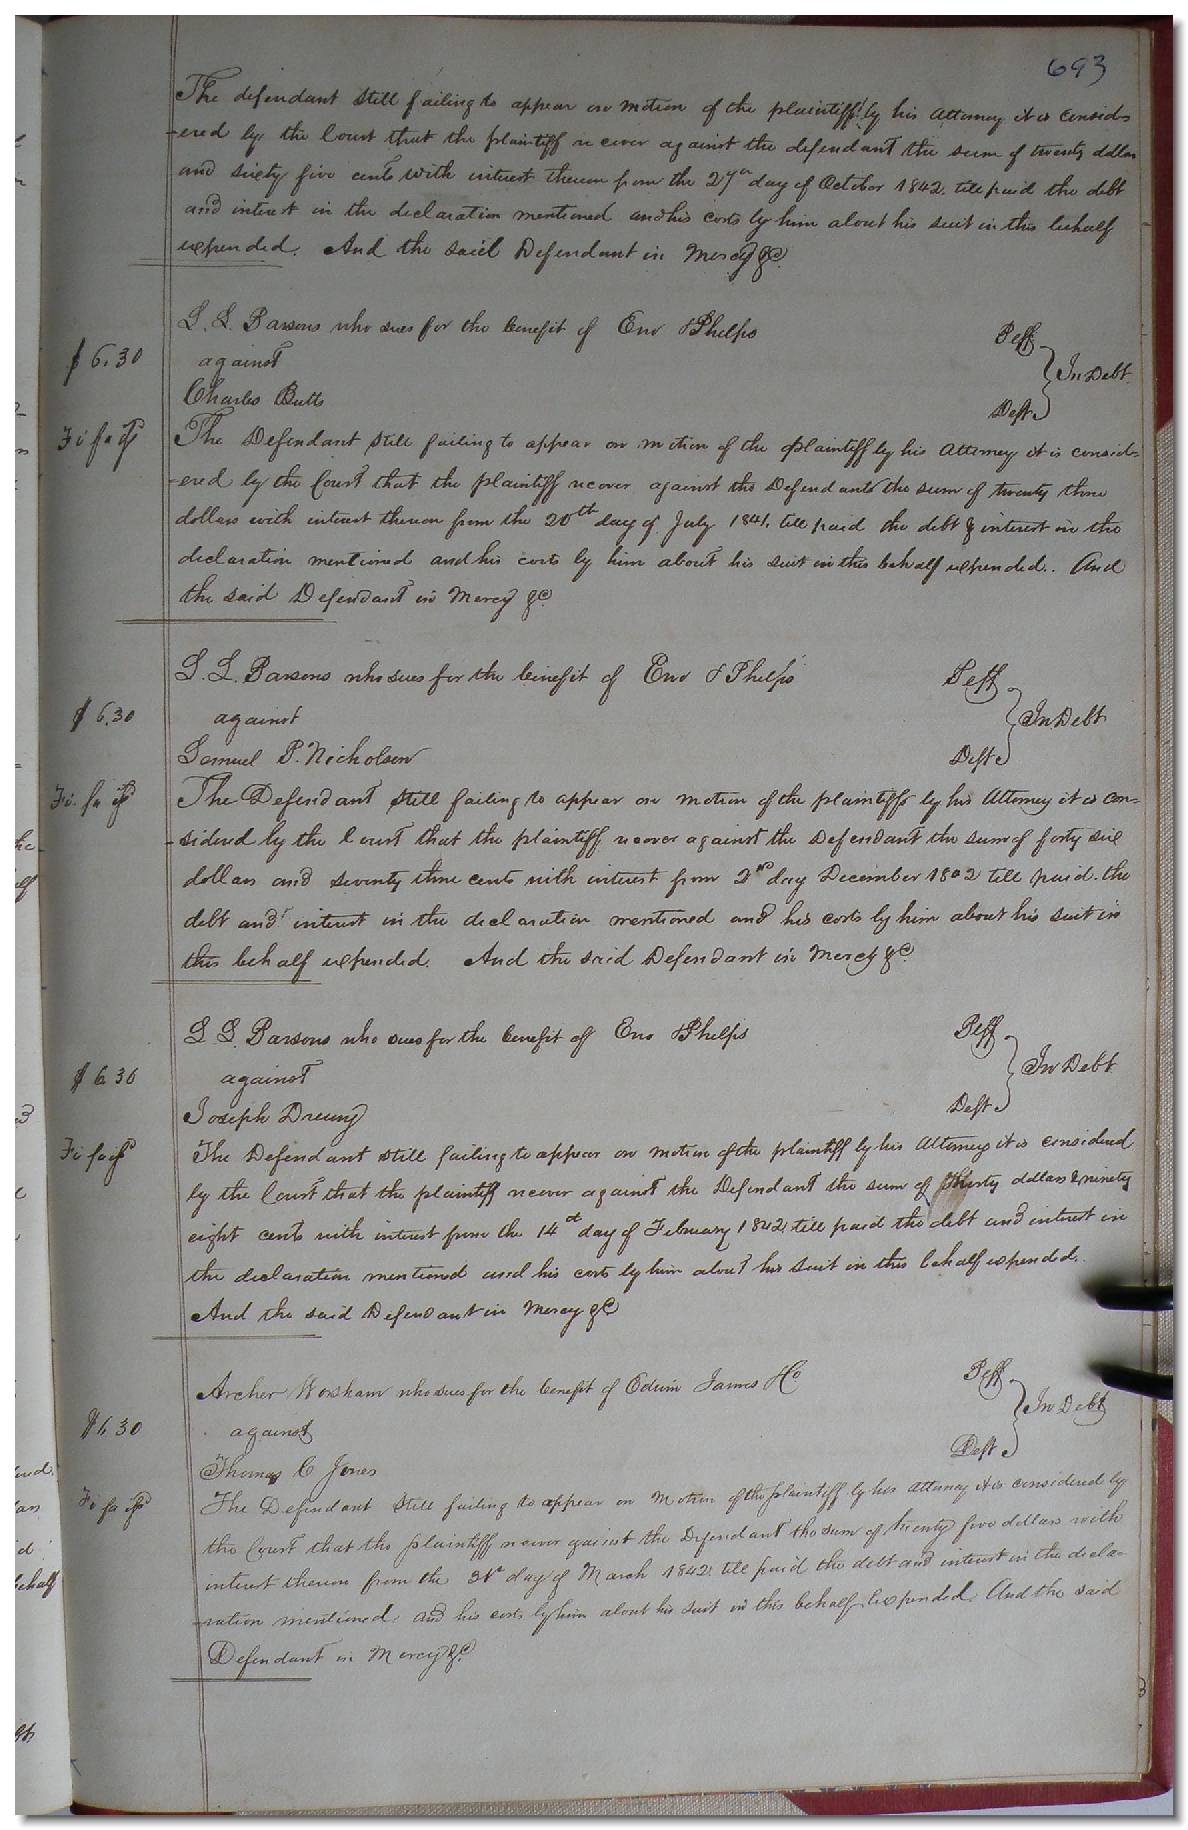 693
The defendant still failing to appear on motion of the plaintiff by his attorney it is consid-
-ered by the Court that the plaintiff recover against the defendant the sum of twenty dollars
and sixty five cents with interest thereon from the 27th day of October 1842 till paid the debt
and interest in the declaration mentioned and his costs by him about his suit in this behalf
expended. And the said Defendant in Mercy &c
S. S. Parsons who sues for the benefit of Eno & Phelps Plff
$6.30 against In Debt
Charles Butts Deft
Fi fa
The Defendant still failing to appear on motion of the plaintiff by his attorney it is consid-
-ered by the Court that the plaintiff recover against the Defendant the sum of twenty three
dollars with interest thereon from the 20th day of July 1841, till paid the debt & interest in the
declaration mentioned and his costs by him about his suit in this behalf expended. And
the said Defendant in Mercy &c
S. S. Parsons who sues for the benefit of Eno & Phelps Plff
$6.30 against In Debt
Samuel P. Nicholson Deft
Fi. fa
The Defendant still failing to appear on motion of the plaintiffs by his Attorney it is con-
-sidered by the Court that the plaintiff recover against the Defendant the sum of forty six
dollars and seventy three cents with interest from 2nd day December 1842 till paid the
debt and interest in the declaration mentioned and his costs by him about his suit in
this behalf expended. And the said Defendant in Mercy &c
S. S. Parsons who sues for the benefit of Eno & Phelps Plff
$6.30 against In Debt
Joseph Deft
Fi fa
The Defendant still failing to appear on motion of the plaintiff by his Attorney it is considered
by the Court that the plaintiff recover against the Defendant the sum of thirty dollars & ninety
eight cents with interest from the 14th day of February 1842 till paid the debt and interest in
the declaration mentioned and his costs by him about his suit in this behalf expended.
And the said Defendant in Mercy &c
Archer Worsham who sues for the benefit of Edwin James & Co Plff
$6.30 against In Debt
Thomas C Jones Deft
Fi fa
The Defendant still failing to appear on Motion of the plaintiff by his attorney it is considered by
the Court that the plaintiff recover against the Defendant the sum of twenty five dollars with
interest thereon from the 31st day of March 1842 till paid the debt and interest in the decla-
-ration mentioned and his costs by him about his suit in this behalf expended. And the said
Defendant in Mercy &c